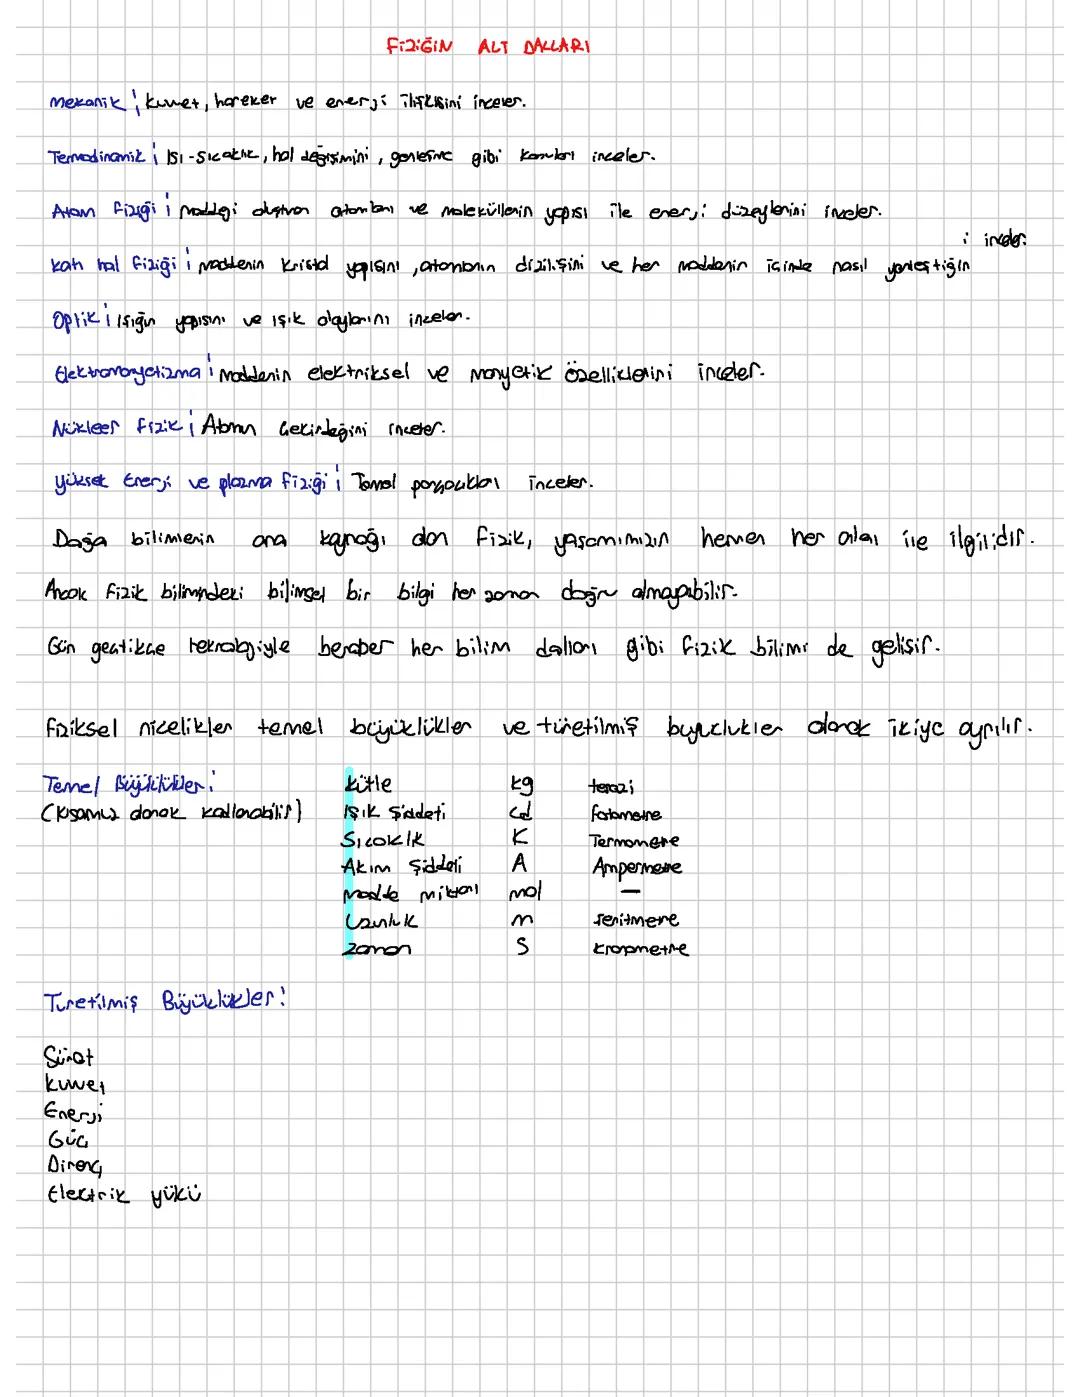 FİZİĞİN ALT DALLARI
Mekanik; kuvvet, hareket ve enerji ilişkisini inceler.
Termodinamik; Isı-sıcaklık, hal değişimini, genleşme gibi konuları inceler.
Atom Fiziği; maddeyi oluşturan atomları ve moleküllerin yapısı ile enerji düzeylerini inceler.
Katı hal fiziği; maddenin kristal yapısını, atomların dizilişini ve her maddenin içinde nasıl yerleştiğin
i inceler.
Optik; ışığın yapısını ve ışık olaylarını inceler.
Elektromanyetizma; maddenin elektriksel ve manyetik özelliklerini inceler.
Nükleer fizik; Atomun çekirdeğini inceler.
Yüksek Enerji ve plazma fiziği; Temel parçacıkları inceler.
Doğa bilimlerin ana kaynağı olan fizik, yaşamımızın hemen her alanı ile ilgilidir.
Ancak fizik bilimindeki bilimsel bir bilgi her zaman doğru olmayabilir.
Gün geçtikçe teknolojiyle beraber her bilim dalları gibi fizik bilimi de gelişir.
Fiziksel nicelikler temel büyüklükler ve türetilmiş büyüklükler olarak ikiye ayrılır.
Temel Büyüklükler; kütle kg terazi
(kısamuz olarak kodlanabilir) Işık Şiddeti cd fotometre
Sıcaklık K Termometre
Akım Şiddeti A Ampermetre
Madde miktarı mol —
Uzunluk m
Zaman s kronometre
Türetilmiş Büyüklükler:
Sürat
Kuvvet
Enerji
Güç
Direnç
Elektrik yükü